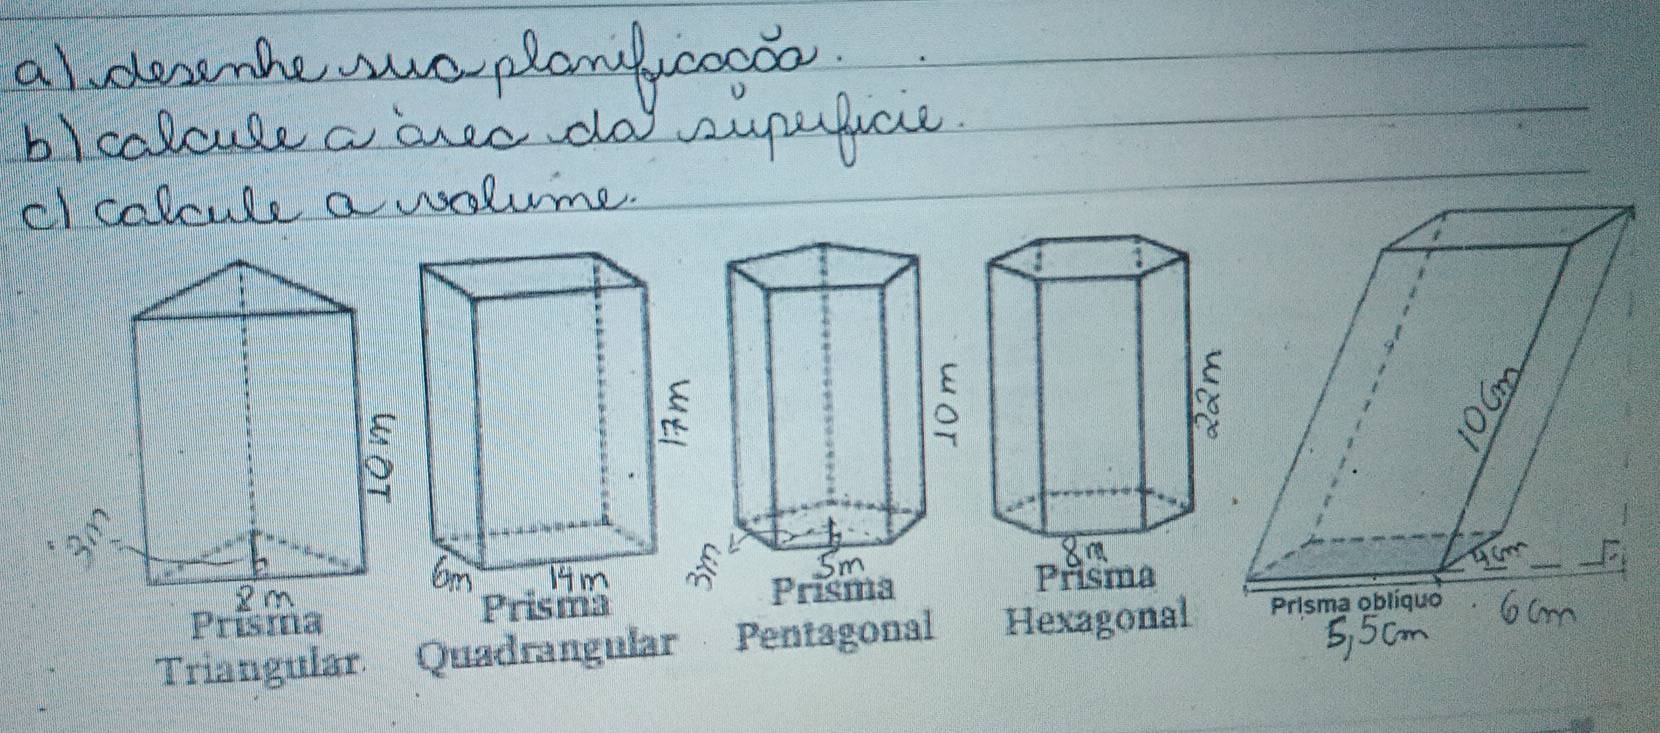 a) desenhe sua planificação.
b) calcule a área da superfície.
c) calcule a volume.
10m
3m
h
2m
Prisma
Triangular.
17m
6m
14m
Prisma
Quadrangular
10m
3m
h
5m
Prisma
Pentagonal
22m
8m
Prisma
Hexagonal
10cm
4cm
Prisma oblíquo
5,5cm
6cm